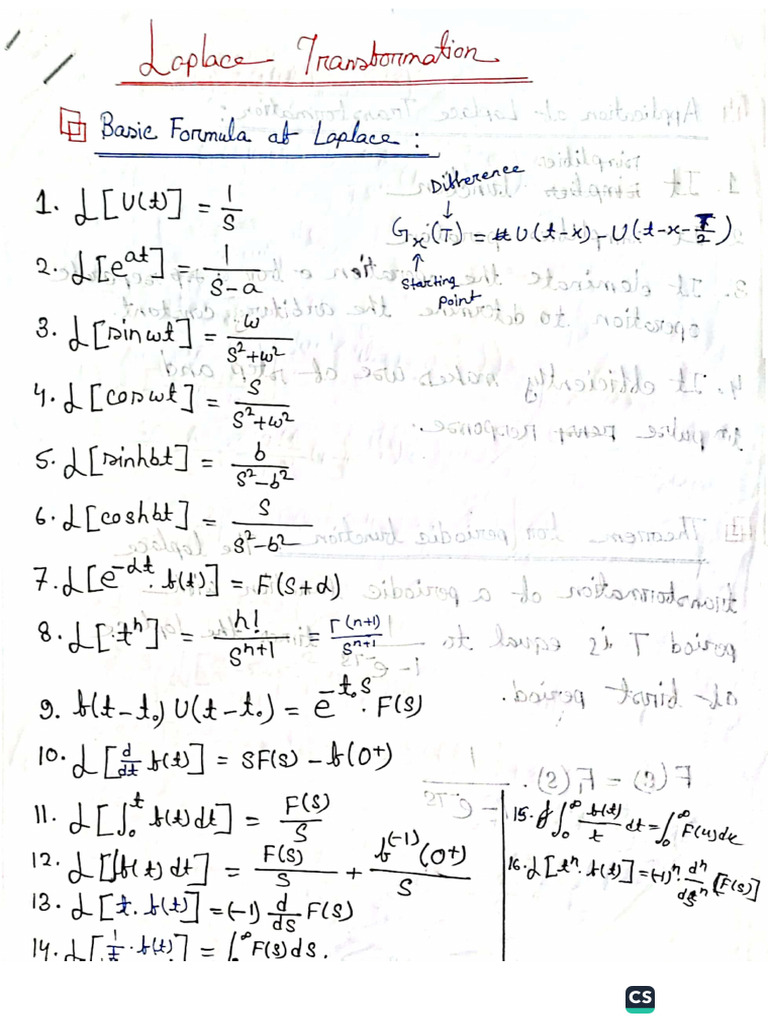 Laplace Transformation
Basic Formula of Laplace :
1. L[U(t)] = 1/S
2. L[e^at] = 1/(S-a)
3. L[sinωt] = ω/(S²+ω²)
4. L[cosωt] = S/(S²+ω²)
5. L[sinhbt] = b/(S²-b²)
6. L[coshbt] = S/(S²-b²)
7. L[e^-αt . f(t)] = F(S+α)
8. L[t^n] = n!/S^(n+1) = Γ(n+1)/S^(n+1)
9. f(t-t₀) U(t-t₀) = e^-t₀s . F(S)
10. L[d/dt f(t)] = SF(S) - f(0+)
11. L[∫₀^t f(t)dt] = F(S)/S
12. L[∫f(t)dt] = F(S)/S + f^(-1)(0+)/S
13. L[t. f(t)] = (-1) d/ds F(S)
14. L[1/t . f(t)] = ∫^∞ F(S)ds.
Difference
↓
G_x(T) = U(t-x) - U(t-x-T/2)
↑
Starting
Point
15. ∫₀^∞ f(t)/t dt = ∫₀^∞ F(u)du
16. L[t^n . f(t)] = (-1)^n . d^n/ds^n [F(S)]
CS